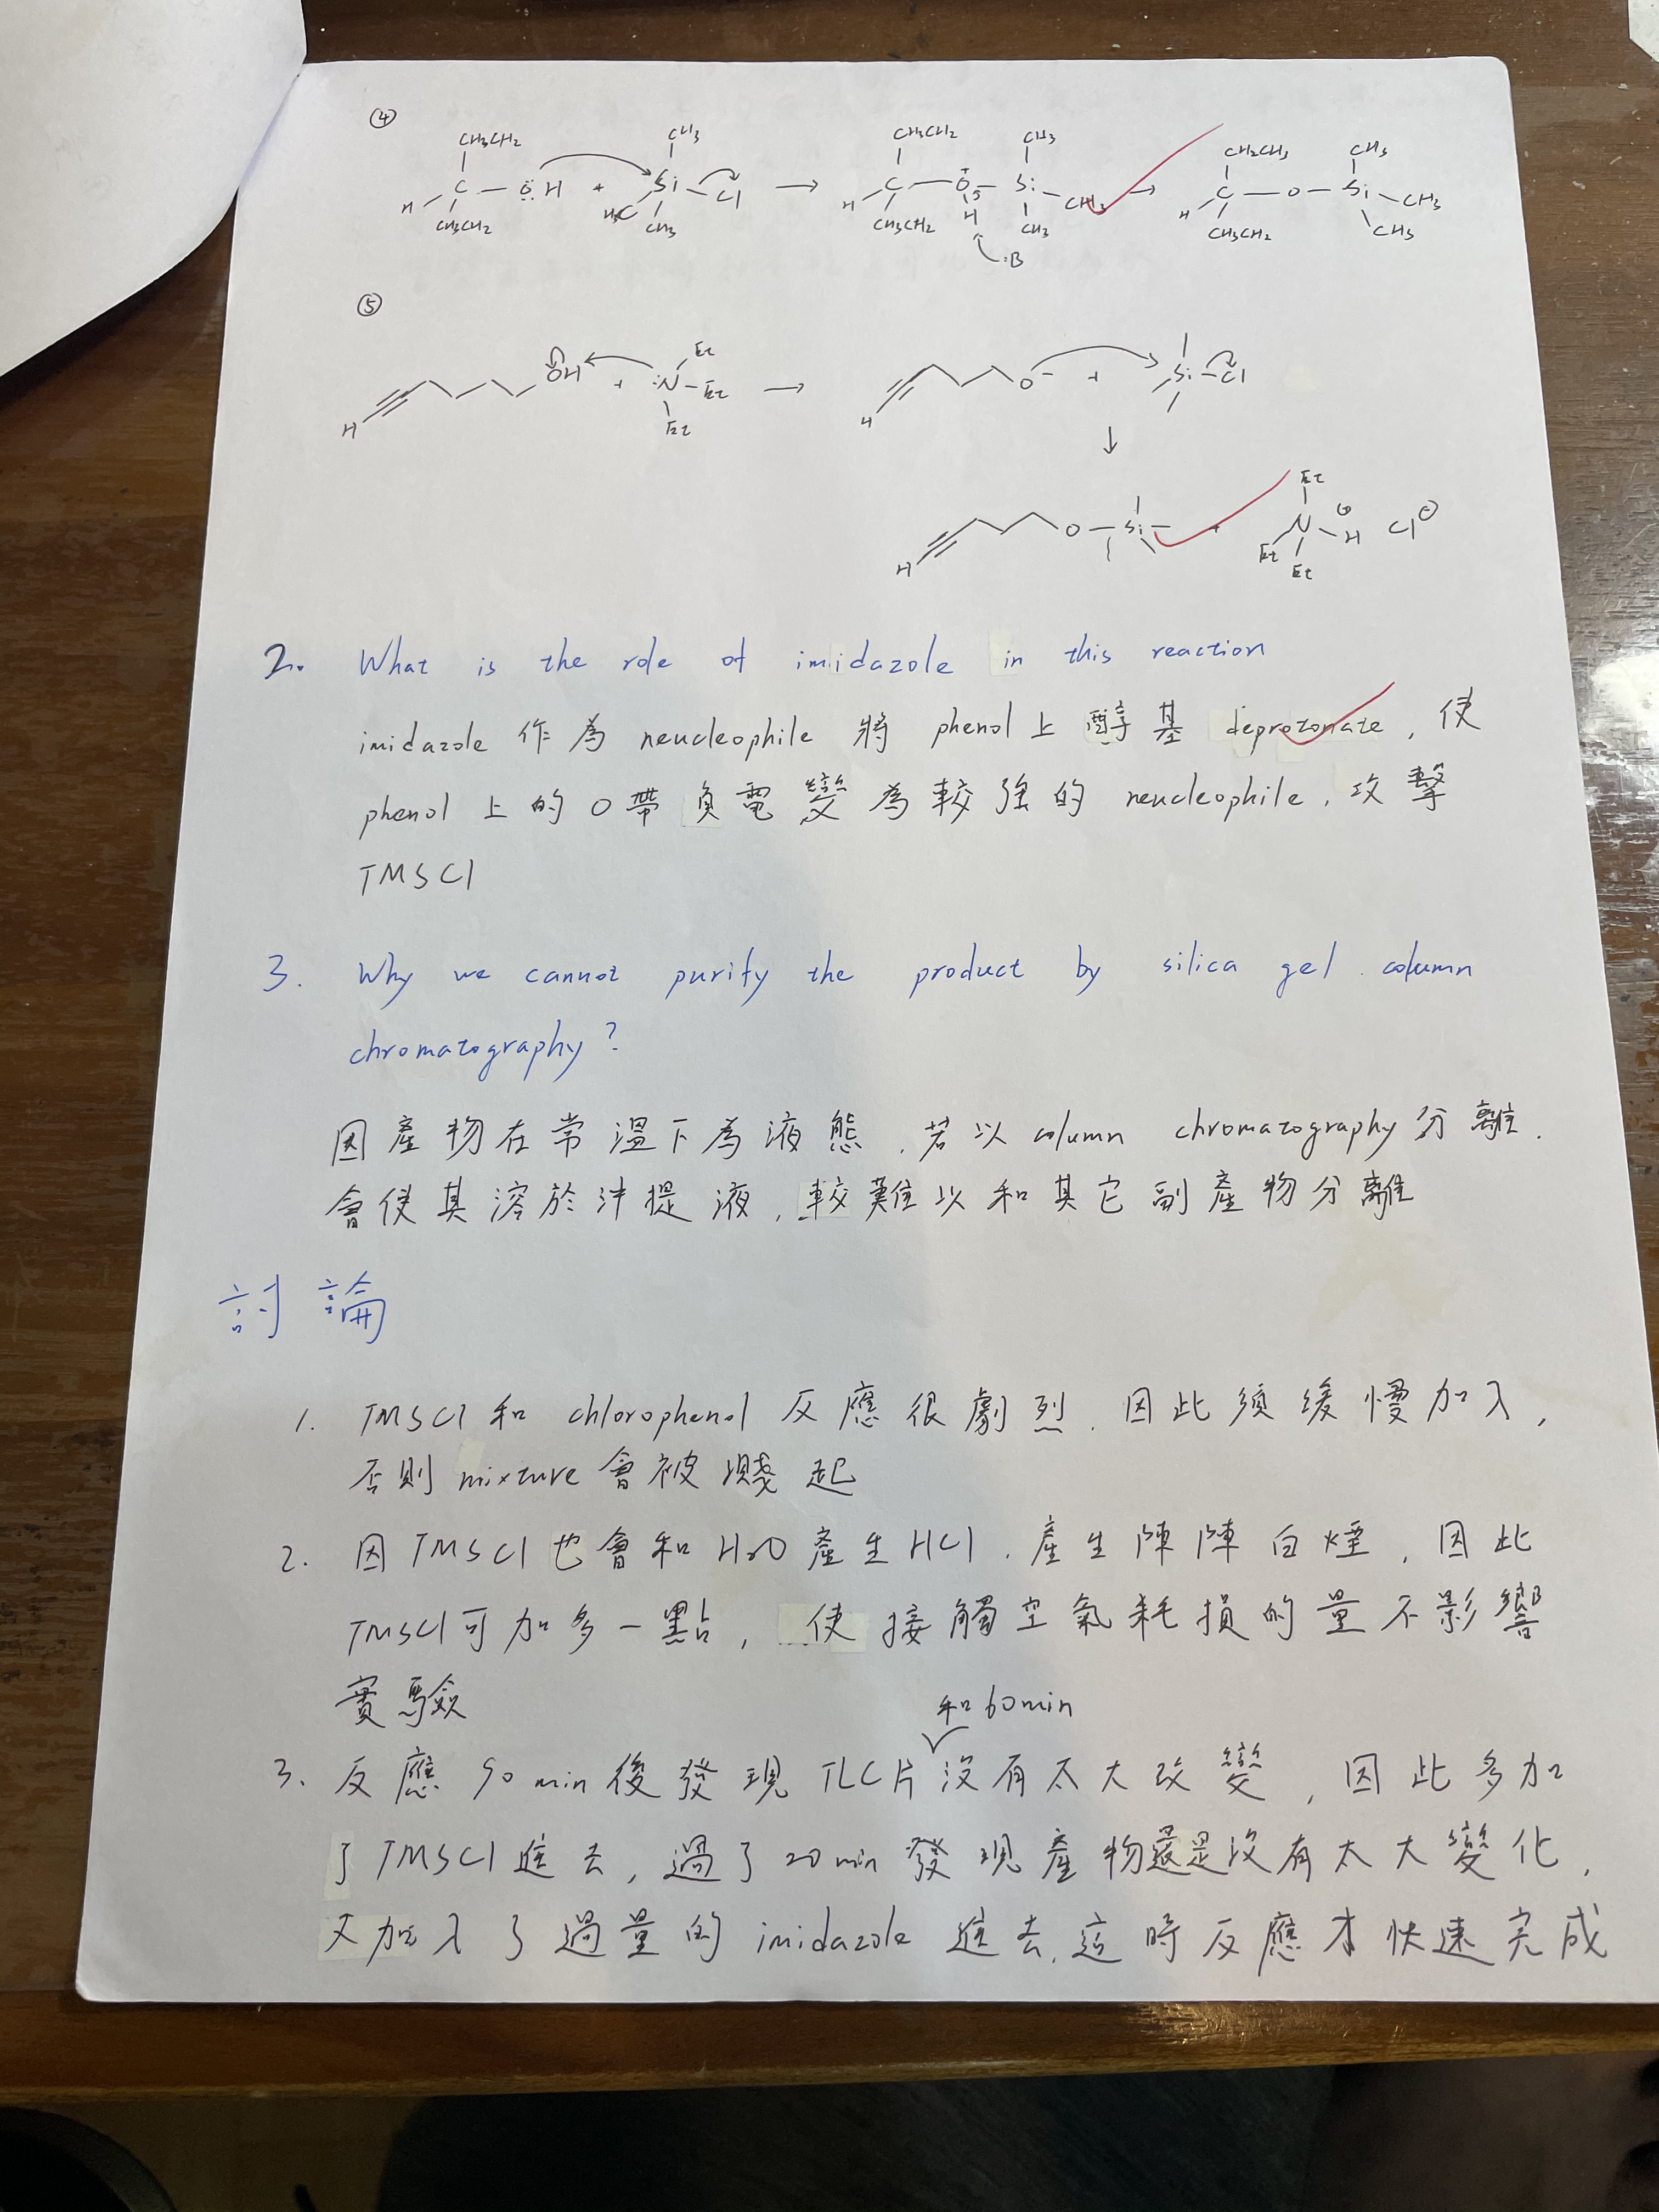 ④
CH3CH2 CH3 CH3CH2 CH3 CH2CH3 CH3
H C OH + Si Cl → H C O Si CH3 → H C O Si CH3
CH3CH2 H3C CH3 CH3CH2 H CH3 CH3CH2 CH3
:B
⑤
OH + :N Et Et Et → O⁻ + Si Cl
H H
↓
H O Si + Et N H Cl⊖
Et Et ⊕
2. What is the role of imidazole in this reaction
imidazole 作為 neucleophile 將 phenol 上 醇基 deprotonate, 使
phenol 上的 O 帶負電變為較強的 neucleophile, 攻擊
TMSCl
3. Why we cannot purify the product by silica gel column
chromatography?
因產物在常溫下為液態, 若以 column chromatography 分離,
會使其溶於沖提液, 較難以和其它副產物分離
討論
1. TMSCl 和 chlorophenol 反應很劇烈, 因此須緩慢加入,
否則 mixture 會被濺起
2. 因 TMSCl 也會和 H2O 產生 HCl, 產生陣陣白煙, 因此
TMSCl 可加多一點, 使接觸空氣耗損的量不影響
實驗
和 60 min
3. 反應 90 min 後發現 TLC 片沒有太大改變, 因此多加
了 TMSCl 進去, 過了 20 min 發現產物還是沒有太大變化,
又加入了過量的 imidazole 進去, 這時反應才快速完成